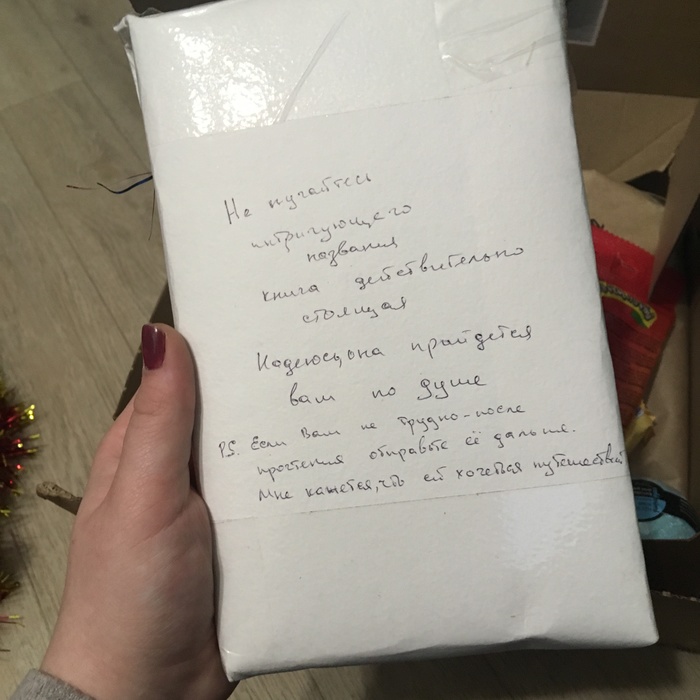 Не пугайтесь
интригующего
названия
книга действительно
стоящая
Надеюсь, она прийдется
вам по душе
P.S. Если Вам не трудно - после
прочтения отправьте её дальше.
Мне кажется, что ей хочется путешествий